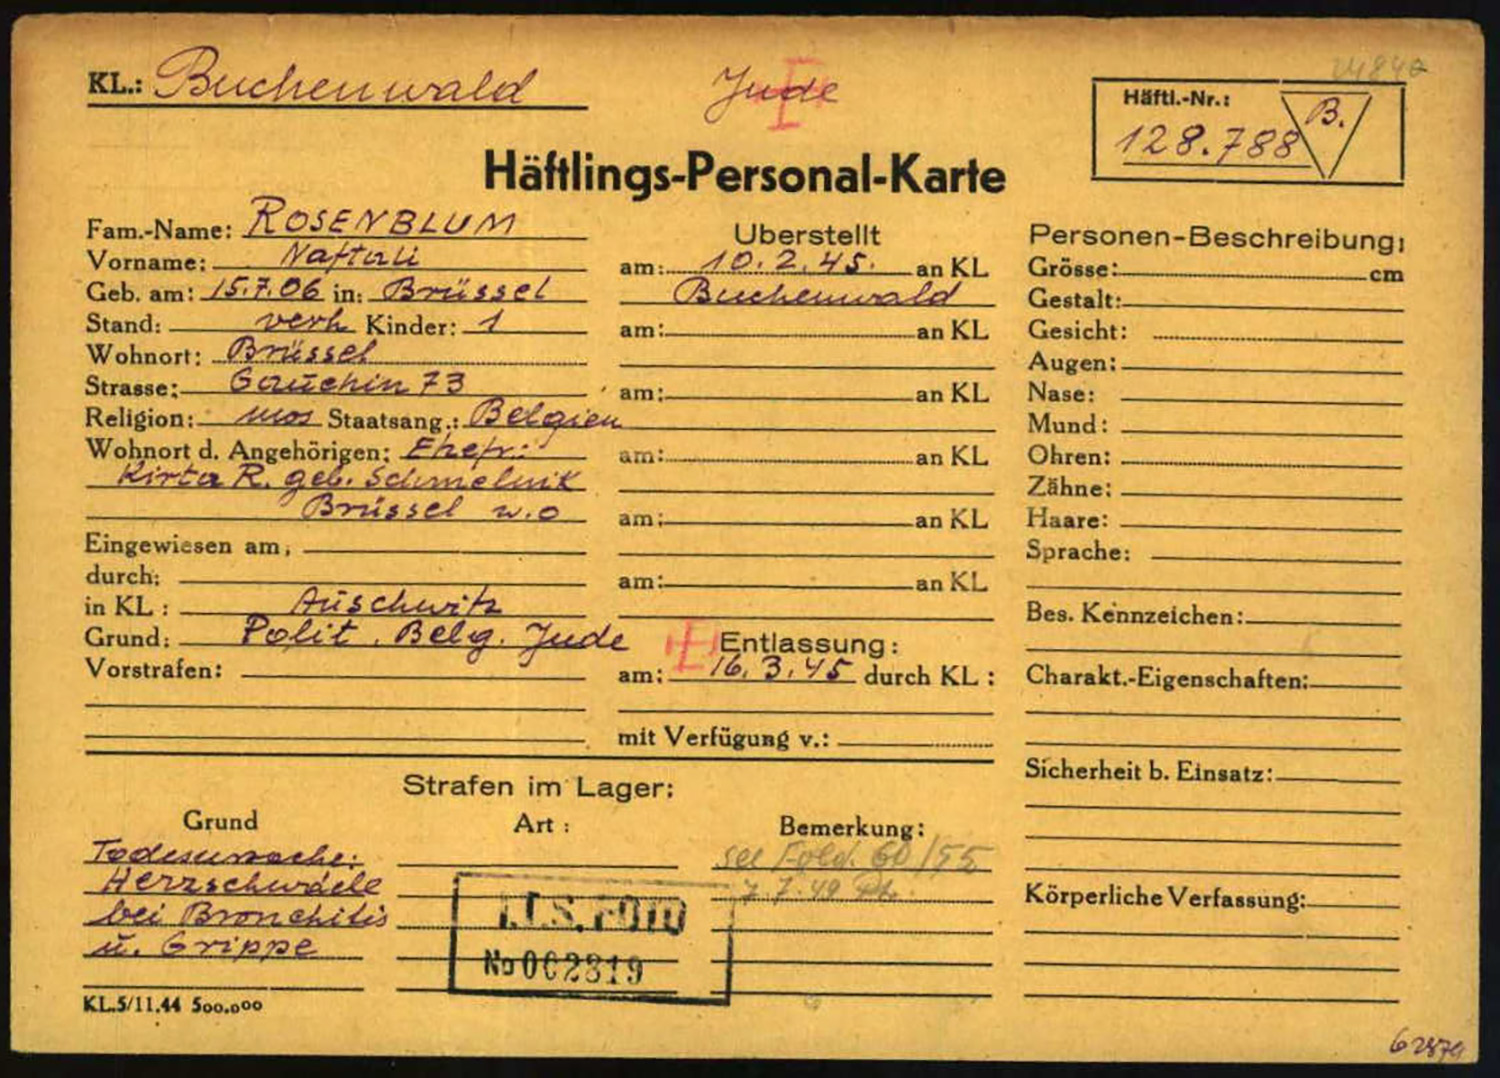 KL.: Buchenwald Jude
Häftl.-Nr.: B.
128.788
Häftlings-Personal-Karte
Fam.-Name: ROSENBLUM
Vorname: Naftali
Geb. am: 15.7.06 in: Brüssel
Stand: verh Kinder: 1
Wohnort: Brüssel
Strasse: Gauchin 73
Religion: mos Staatsang.: Belgien
Wohnort d. Angehörigen: Ehefr:
Kirta R. geb. Schmelnik
Brüssel w.o
Eingewiesen am:
durch:
in KL: Auschwitz
Grund: Polit. Belg. Jude
Vorstrafen:
Uberstellt
am: 10.2.45. an KL
Buchenwald
am: an KL
am: an KL
am: an KL
am: an KL
am: an KL
Entlassung:
am: 16.3.45 durch KL:
mit Verfügung v.:
Personen-Beschreibung:
Grösse: cm
Gestalt:
Gesicht:
Augen:
Nase:
Mund:
Ohren:
Zähne:
Haare:
Sprache:
Bes. Kennzeichen:
Charakt.-Eigenschaften:
Sicherheit b. Einsatz:
Körperliche Verfassung:
Strafen im Lager:
Grund Art: Bemerkung:
Todesursache:
Herzschwäche
bei Bronchitis
u. Grippe
7.7.49
I.T.S. FOTO
No 002819
KL.5/11.44 500.000